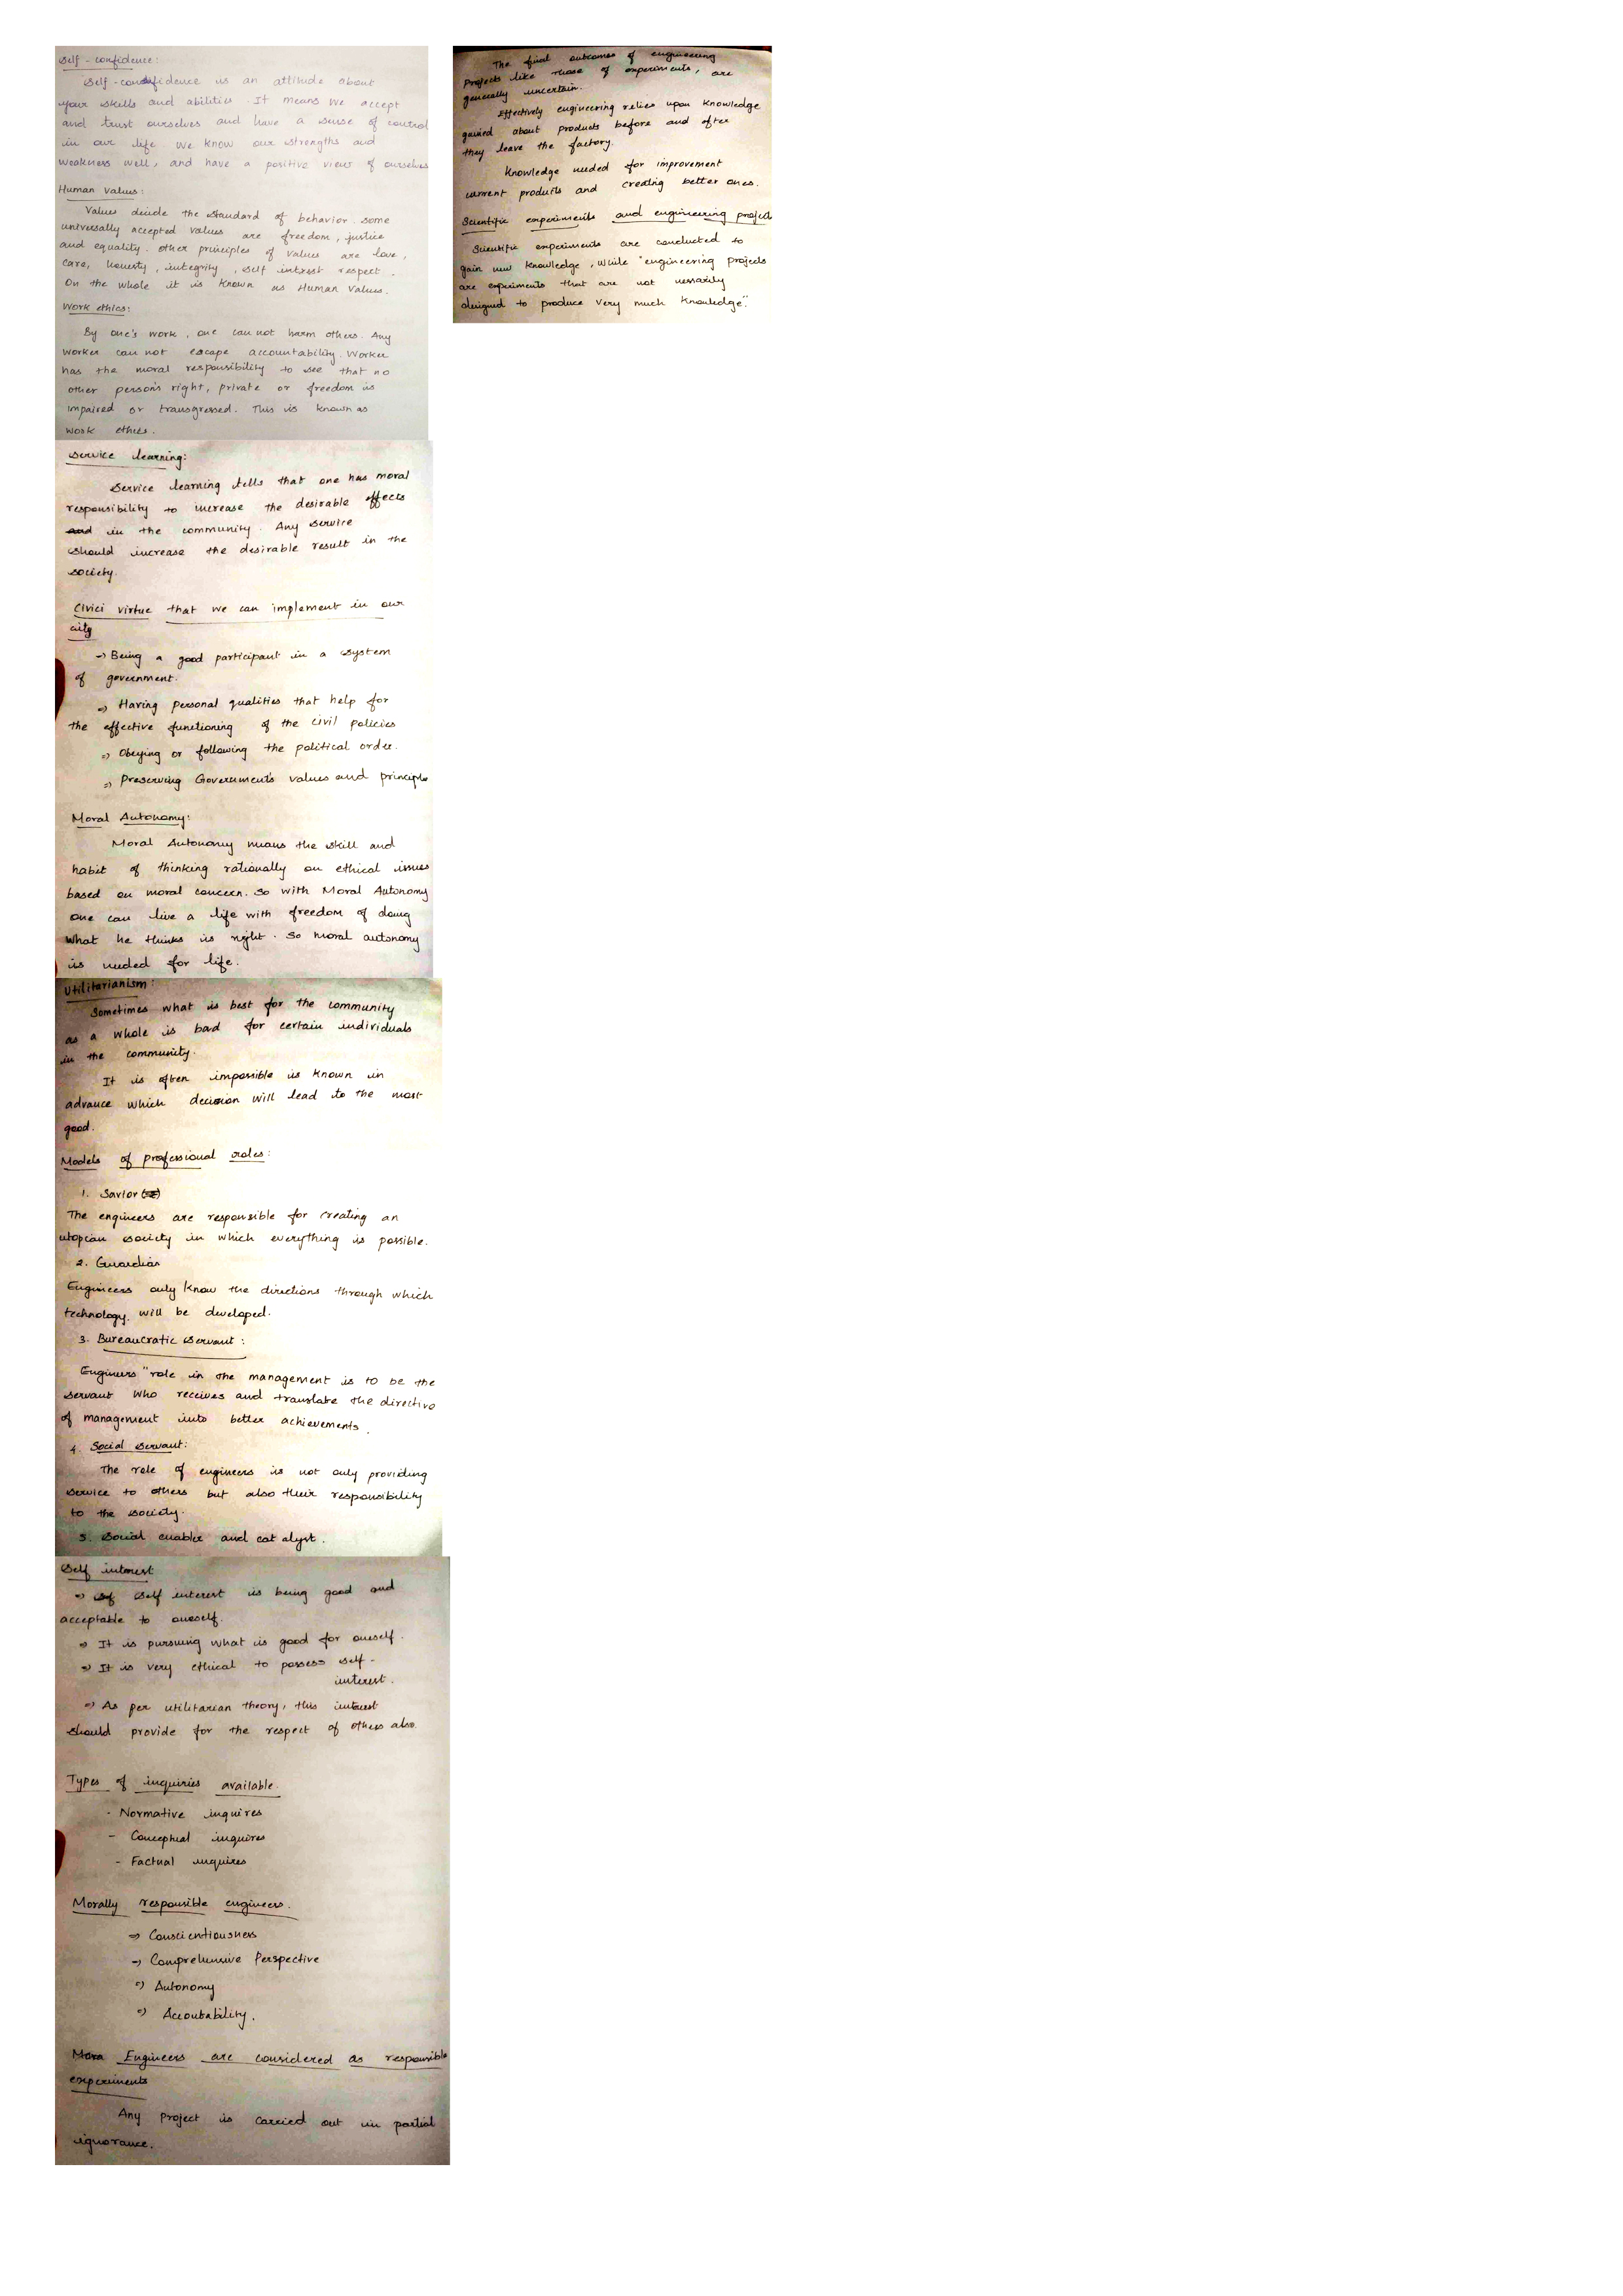 Self - confidence:
Self - confidence is an attitude about
your skills and abilities. It means we accept
and trust ourselves and have a sense of control
in our life. We know our strengths and
weakness well, and have a positive view of ourselves
Human Values:
Values decide the standard of behavior. some
universally accepted values are freedom, justice
and equality. other principles of values are love,
care, honesty, integrity, self intrest respect.
On the whole it is known as Human Values.
Work ethics:
By one's work, one can not harm others. Any
worker can not escape accountability. Worker
has the moral responsibility to see that no
other person's right, private or freedom is
impaired or transgressed. This is known as
work ethics.
Service learning:
Service learning tells that one has moral
responsibility to increase the desirable effects
and in the community. Any service
should increase the desirable result in the
society.
Civici virtue that we can implement in our
city
-> Being a good participant in a system
of government.
=> Having personal qualities that help for
the effective functioning of the civil policies
=> Obeying or following the political order.
=> Preserving Government's values and principle
Moral Autonomy:
Moral Autonomy means the skill and
habit of thinking rationally on ethical issues
based on moral concern. So with Moral Autonomy
one can live a life with freedom of doing
what he thinks is right. So moral autonomy
is needed for life.
Utilitarianism:
Sometimes what is best for the community
as a whole is bad for certain individuals
in the community.
It is often impossible is known in
advance which decision will lead to the most
good.
Models of professional roles:
1. Savior
The engineers are responsible for creating an
utopian society in which everything is possible.
2. Guardian
Engineers only know the directions through which
technology will be developed.
3. Bureaucratic servant:
Engineers "role in the management is to be the
servant who receives and translate the directive
of management into better achievements.
4. Social servant:
The role of engineers is not only providing
service to others but also their responsibility
to the society.
5. Social enabler and catalyst.
Self interest
=> Self interest is being good and
acceptable to oneself.
=> It is pursuing what is good for oneself.
=> It is very ethical to possess self -
interest.
=> As per utilitarian theory, this interest
should provide for the respect of others also.
Types of inquiries available.
- Normative inquires
- Conceptual inquires
- Factual inquires
Morally responsible engineers.
=> Conscientiousness
-> Comprehensive Perspective
=> Autonomy
=> Accoutability.
Engineers are considered as responsible
experiments
Any project is carried out in partial
ignorance.
The final outcomes of engineering
projects like those of experiments, are
generally uncertain.
Effectively engineering relies upon knowledge
gained about products before and after
they leave the factory.
Knowledge needed for improvement
current products and creating better ones.
Scientific experiments and engineering project
Scientific experiments are conducted to
gain new knowledge, while "engineering projects
are experiments that are not necessarily
designed to produce very much knowledge".